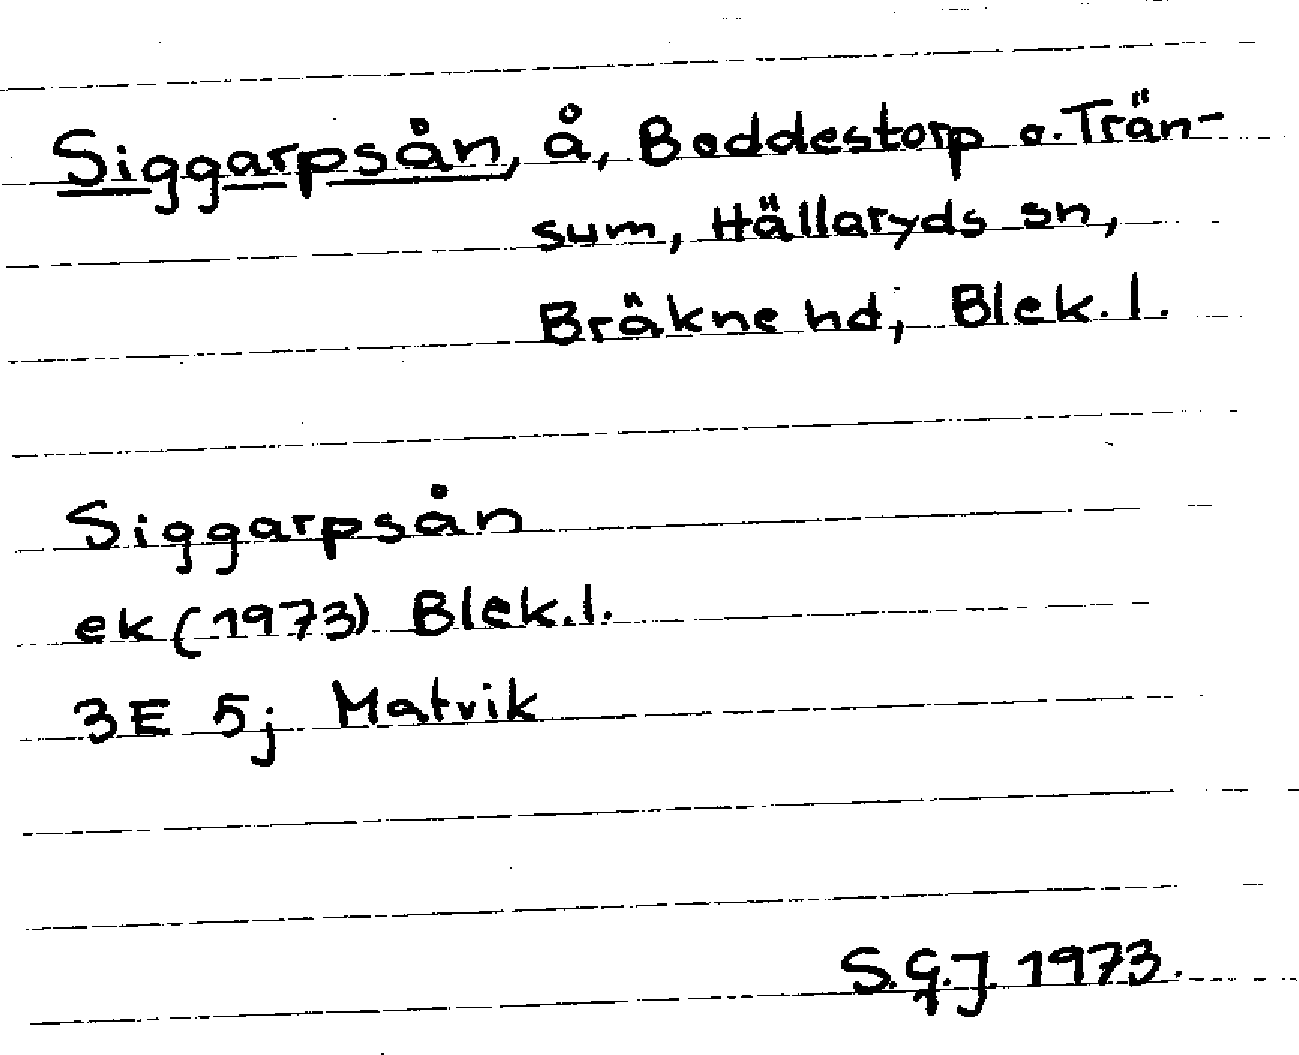 Siggarpsån, å, Boddestorp o. Trän-
sum, Hällaryds sn,
Bräkne hd, Blek. l.
Siggarpsån
ek (1973) Blek. l.
3E 5j Matvik
S.G.J. 1973.